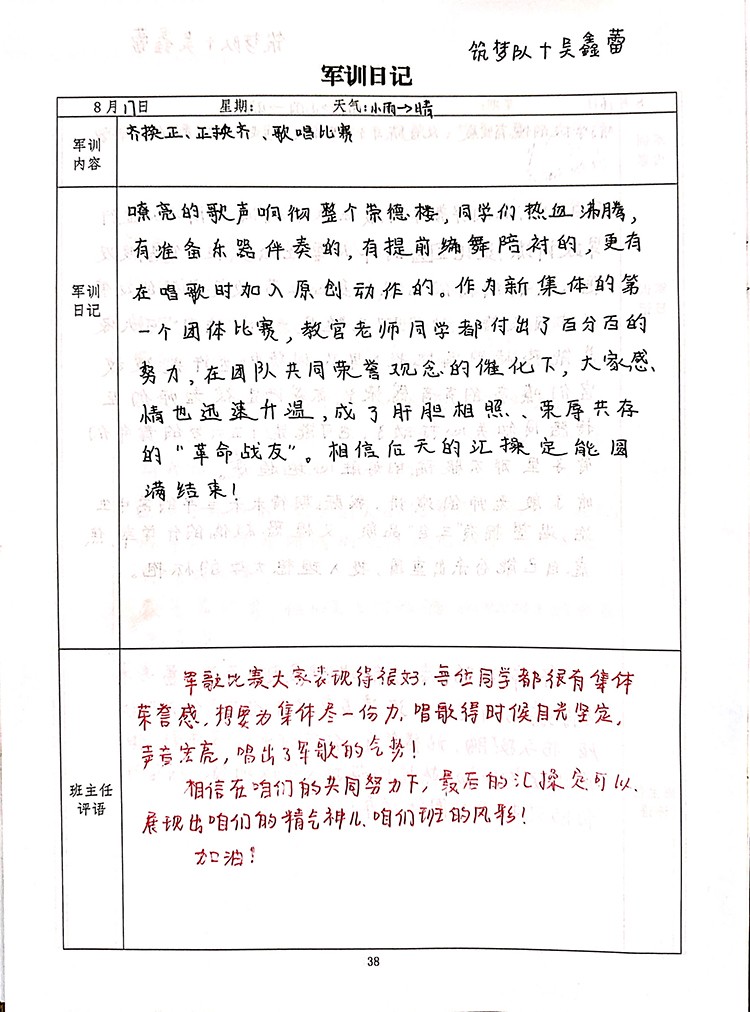 筑梦队+吴鑫蕾
军训日记
8月17日 星期: 天气:小雨→晴
军训内容
齐换正、正换齐、歌唱比赛
军训日记
嘹亮的歌声响彻整个崇德楼,同学们热血沸腾,
有准备乐器伴奏的,有提前编舞陪衬的,更有
在唱歌时加入原创动作的。作为新集体的第
一个团体比赛,教官老师同学都付出了百分百的
努力,在团队共同荣誉观念的催化下,大家感
情也迅速升温,成了肝胆相照、荣辱共存
的“革命战友”。相信后天的汇操定能圆
满结束!
班主任评语
军歌比赛大家表现得很好,每位同学都很有集体
荣誉感,想要为集体尽一份力,唱歌得时候目光坚定,
声音宏亮,唱出了军歌的气势!
相信在咱们的共同努力下,最后的汇操定可以
展现出咱们的精气神儿、咱们班的风彩!
加油!
38